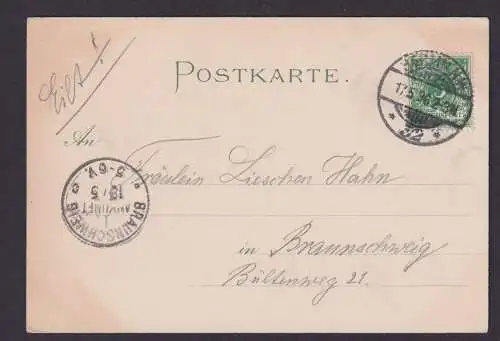 Eilt!
POSTKARTE.
An
Fräulein Lieschen Hahn
in Braunschweig
Bültenweg 21.
BRAUNSCHWEIG
5-6V.
18/5
ANKUNFT
17.5.
32